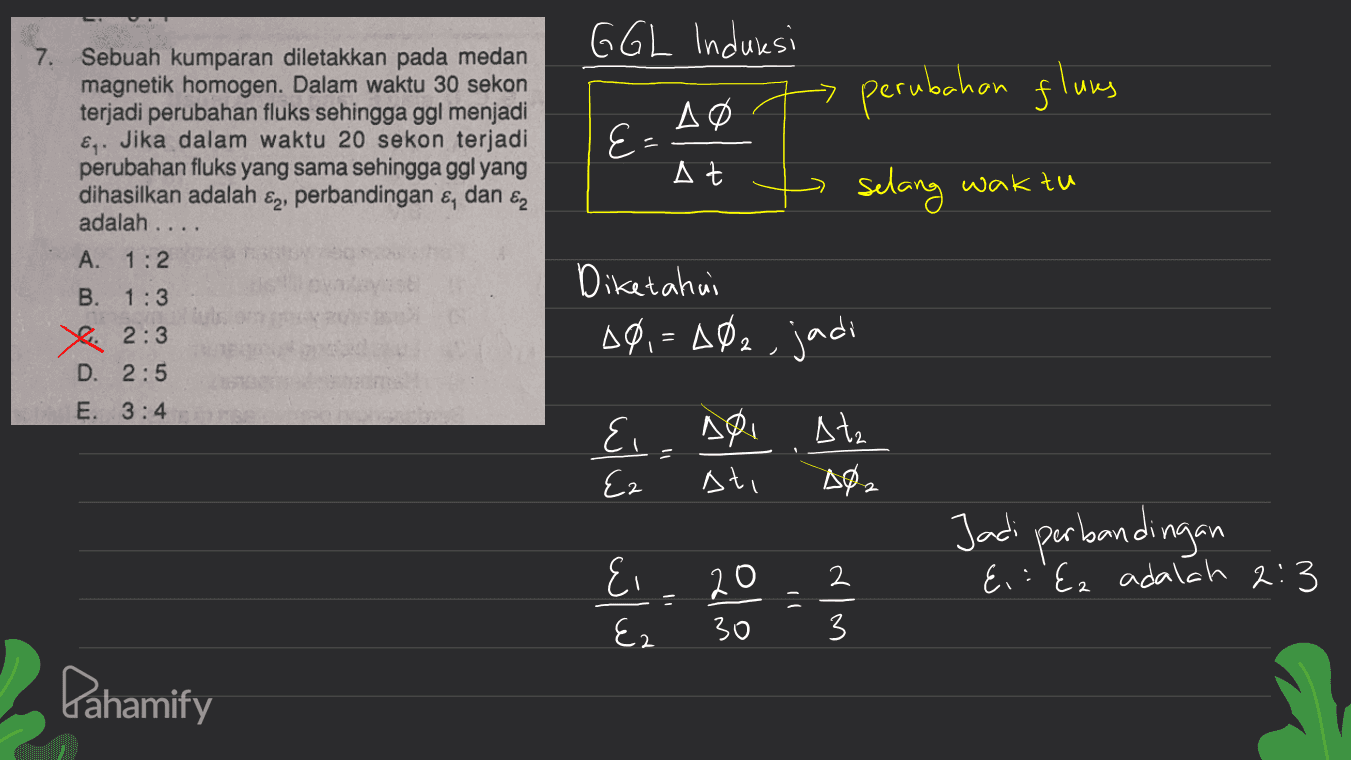 7. Sebuah kumparan diletakkan pada medan
magnetik homogen. Dalam waktu 30 sekon
terjadi perubahan fluks sehingga ggl menjadi
ε₁. Jika dalam waktu 20 sekon terjadi
perubahan fluks yang sama sehingga ggl yang
dihasilkan adalah ε₂, perbandingan ε₁ dan ε₂
adalah . . . .
A. 1 : 2
B. 1 : 3
C. 2 : 3
D. 2 : 5
E. 3 : 4
GGL Induksi
ε = ΔØ / Δt
→ perubahan fluks
→ selang waktu
Diketahui
ΔØ₁ = ΔØ₂, jadi
ε₁ / ε₂ = ΔØ₁ / Δt₁ . Δt₂ / ΔØ₂
ε₁ / ε₂ = 20 / 30 = 2 / 3
Jadi perbandingan
ε₁ : ε₂ adalah 2:3
Pahamify